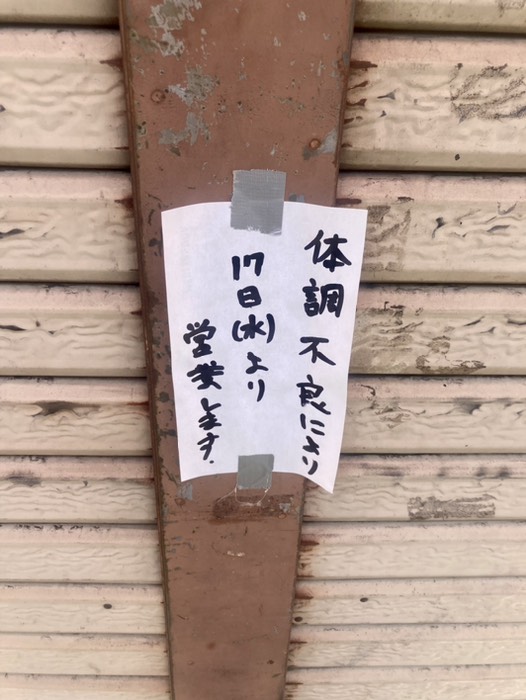 体調不良により
17日(水)より
営業します.